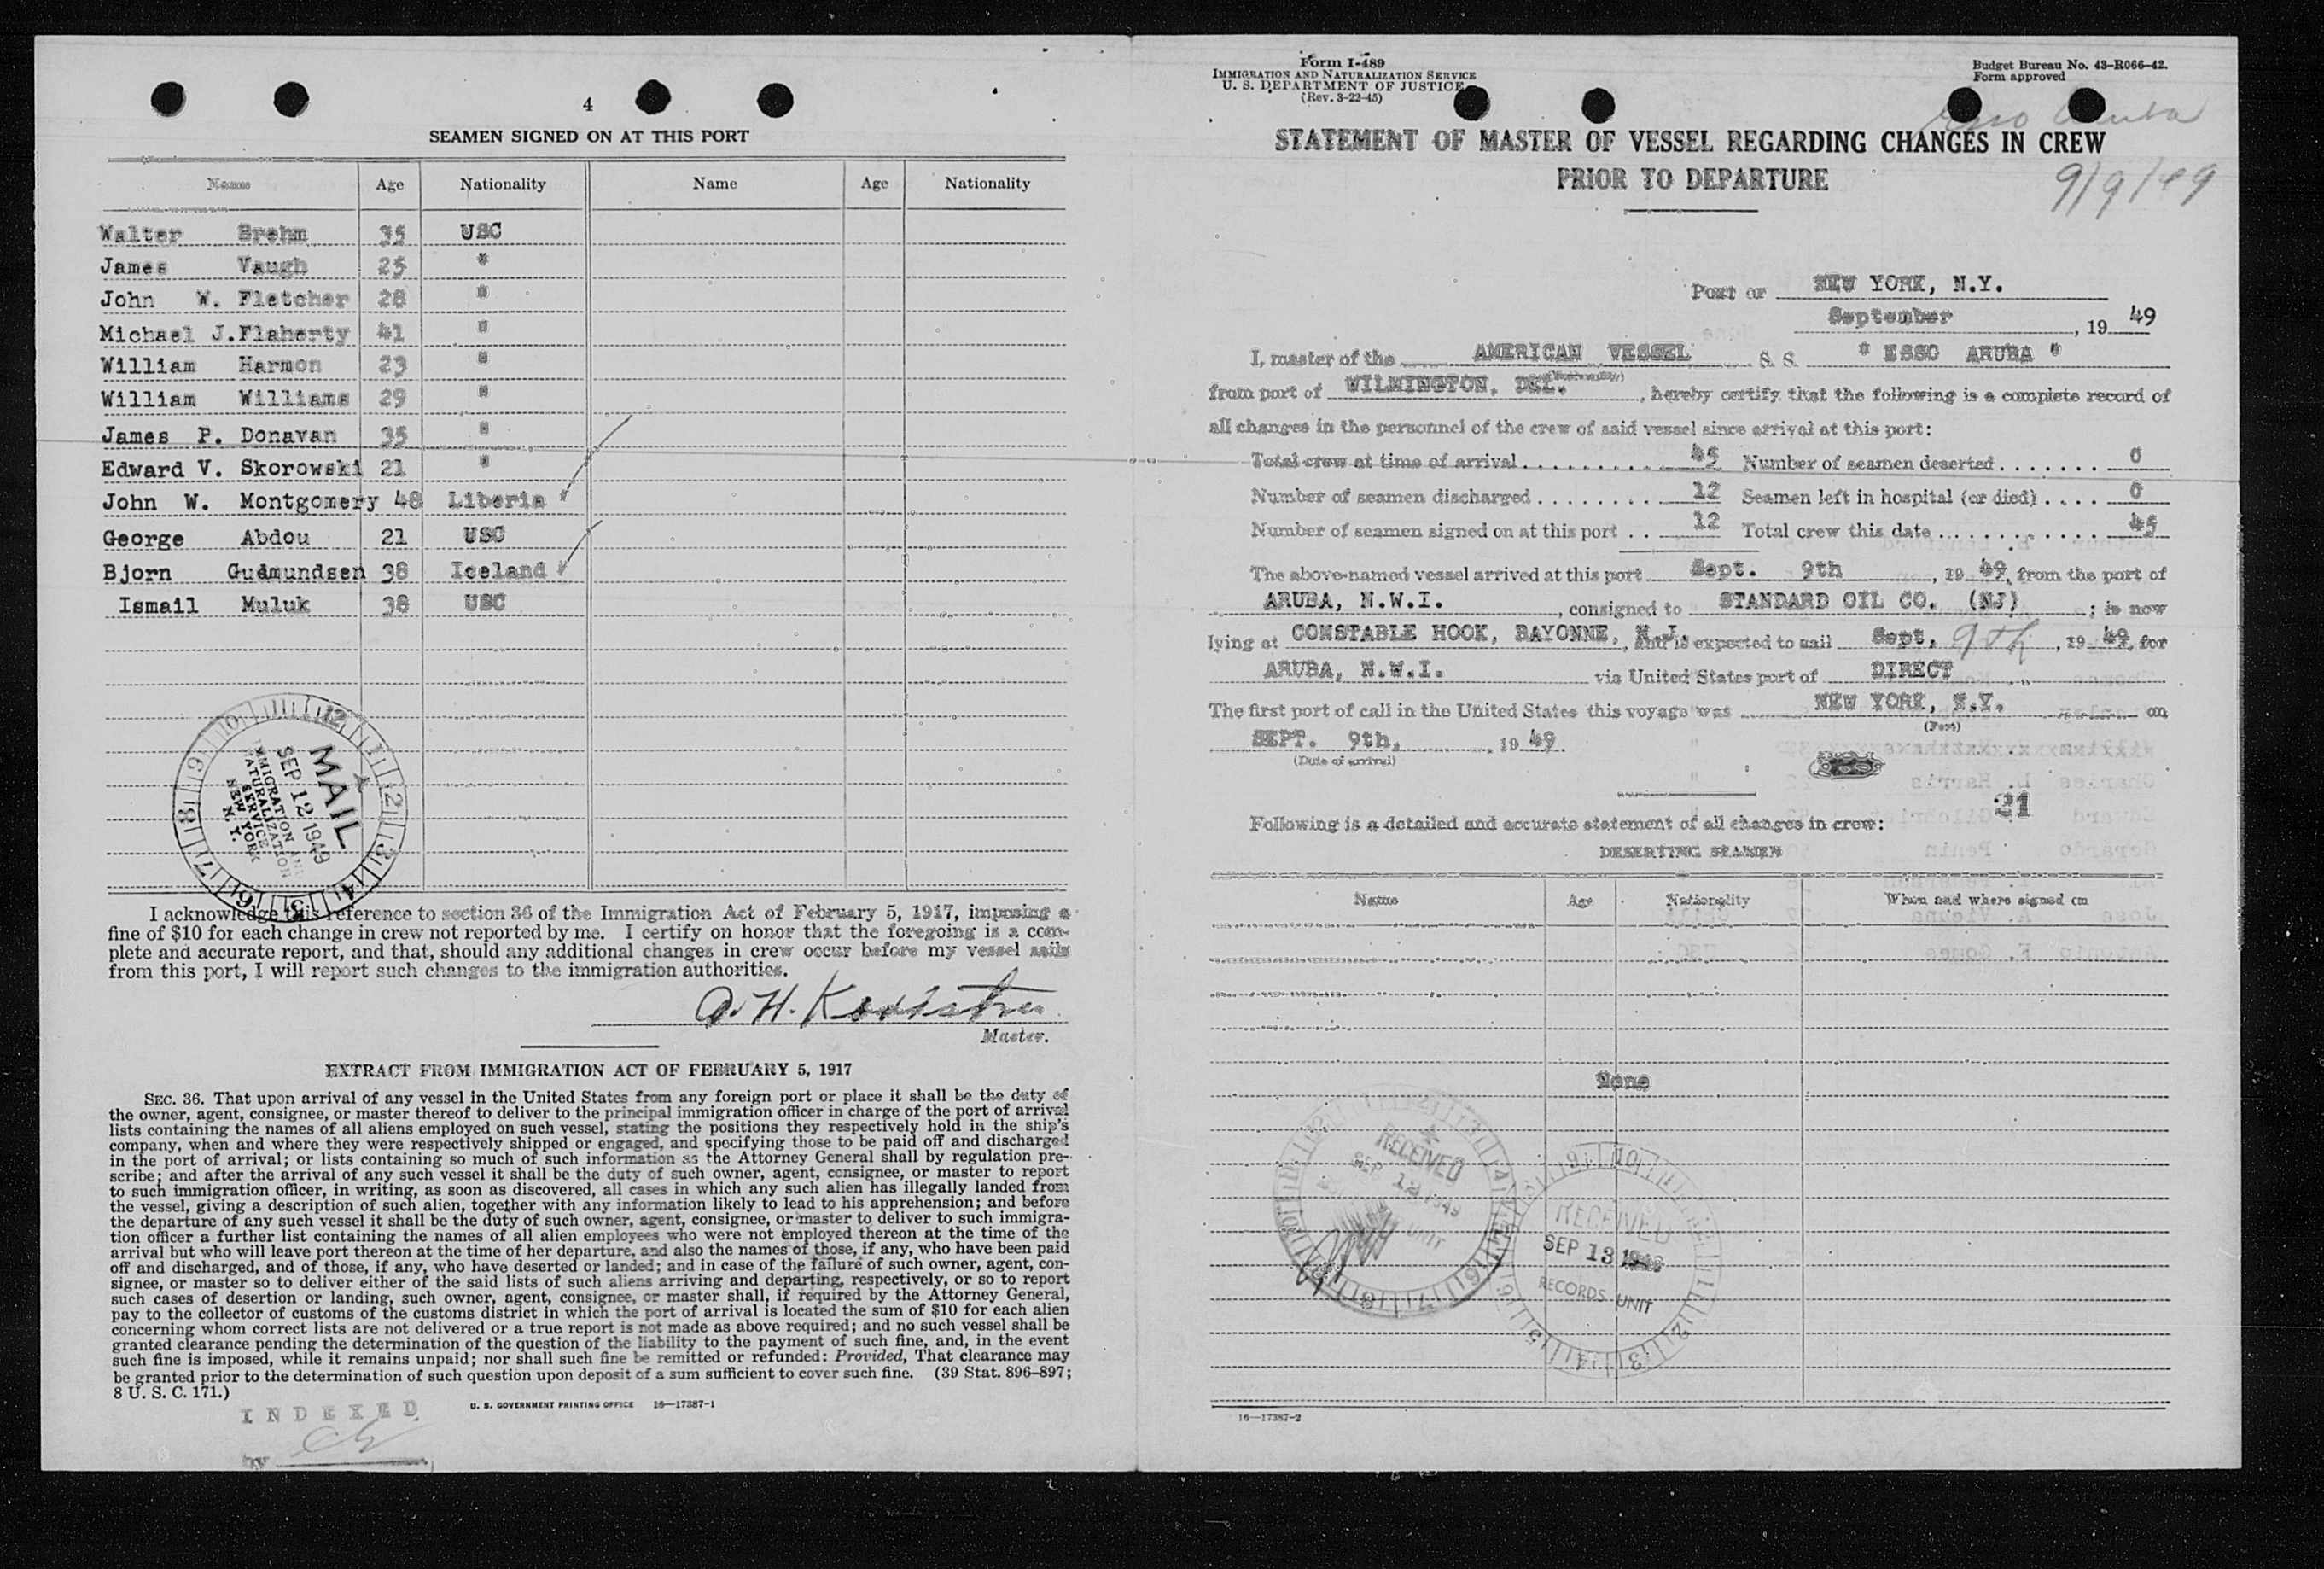 4
SEAMEN SIGNED ON AT THIS PORT
Name Age Nationality Name Age Nationality
Walter Brehm 35 USC
James Vaugh 25 "
John W. Fletcher 28 "
Michael J.Flaherty 41 "
William Harmon 23 "
William Williams 29 "
James P. Donavan 35 "
Edward V. Skorowski 21 "
John W. Montgomery 48 Liberia
George Abdou 21 USC
Bjorn Gudmundsen 38 Iceland
Ismail Muluk 38 USC
MAIL
SEP 12 1949
IMMIGRATION AND
NATURALIZATION
SERVICE
NEW YORK
N. Y.
I acknowledge this reference to section 36 of the Immigration Act of February 5, 1917, imposing a
fine of $10 for each change in crew not reported by me. I certify on honor that the foregoing is a com-
plete and accurate report, and that, should any additional changes in crew occur before my vessel sails
from this port, I will report such changes to the immigration authorities.
Master.
EXTRACT FROM IMMIGRATION ACT OF FEBRUARY 5, 1917
SEC. 36. That upon arrival of any vessel in the United States from any foreign port or place it shall be the duty of
the owner, agent, consignee, or master thereof to deliver to the principal immigration officer in charge of the port of arrival
lists containing the names of all aliens employed on such vessel, stating the positions they respectively hold in the ship's
company, when and where they were respectively shipped or engaged, and specifying those to be paid off and discharged
in the port of arrival; or lists containing so much of such information as the Attorney General shall by regulation pre-
scribe; and after the arrival of any such vessel it shall be the duty of such owner, agent, consignee, or master to report
to such immigration officer, in writing, as soon as discovered, all cases in which any such alien has illegally landed from
the vessel, giving a description of such alien, together with any information likely to lead to his apprehension; and before
the departure of any such vessel it shall be the duty of such owner, agent, consignee, or master to deliver to such immigra-
tion officer a further list containing the names of all alien employees who were not employed thereon at the time of the
arrival but who will leave port thereon at the time of her departure, and also the names of those, if any, who have been paid
off and discharged, and of those, if any, who have deserted or landed; and in case of the failure of such owner, agent, con-
signee, or master so to deliver either of the said lists of such aliens arriving and departing, respectively, or so to report
such cases of desertion or landing, such owner, agent, consignee, or master shall, if required by the Attorney General,
pay to the collector of customs of the customs district in which the port of arrival is located the sum of $10 for each alien
concerning whom correct lists are not delivered or a true report is not made as above required; and no such vessel shall be
granted clearance pending the determination of the question of the liability to the payment of such fine, and, in the event
such fine is imposed, while it remains unpaid; nor shall such fine be remitted or refunded: Provided, That clearance may
be granted prior to the determination of such question upon deposit of a sum sufficient to cover such fine. (39 Stat. 896-897;
8 U. S. C. 171.)
U. S. GOVERNMENT PRINTING OFFICE 16—17387-1
INDEXED
by
Form I-489
IMMIGRATION AND NATURALIZATION SERVICE
U. S. DEPARTMENT OF JUSTICE
(Rev. 3-22-45)
Budget Bureau No. 43-R066-42.
Form approved
Esso Aruba
STATEMENT OF MASTER OF VESSEL REGARDING CHANGES IN CREW
PRIOR TO DEPARTURE
9/9/49
Port of NEW YORK, N.Y.
September, 19 49
I, master of the AMERICAN VESSEL S. S. " ESSO ARUBA "
from port of WILMINGTON, DEL. (Nationality), hereby certify that the following is a complete record of
all changes in the personnel of the crew of said vessel since arrival at this port:
Total crew at time of arrival 45 Number of seamen deserted 0
Number of seamen discharged 12 Seamen left in hospital (or died) 0
Number of seamen signed on at this port 12 Total crew this date 45
The above-named vessel arrived at this port Sept. 9th, 19 49, from the port of
ARUBA, N.W.I., consigned to STANDARD OIL CO. (NJ); is now
lying at CONSTABLE HOOK, BAYONNE, N.J., and is expected to sail Sept. 9th, 19 49, for
ARUBA, N.W.I. via United States port of DIRECT
The first port of call in the United States this voyage was NEW YORK, N.Y. on
(Port)
SEPT. 9th, 19 49
(Date of arrival)
21
Following is a detailed and accurate statement of all changes in crew:
DESERTING SEAMEN
Name Age Nationality When and where signed on
None
RECEIVED
SEP 12 1949
UNIT
RECEIVED
SEP 13 1949
RECORDS UNIT
16—17387-2